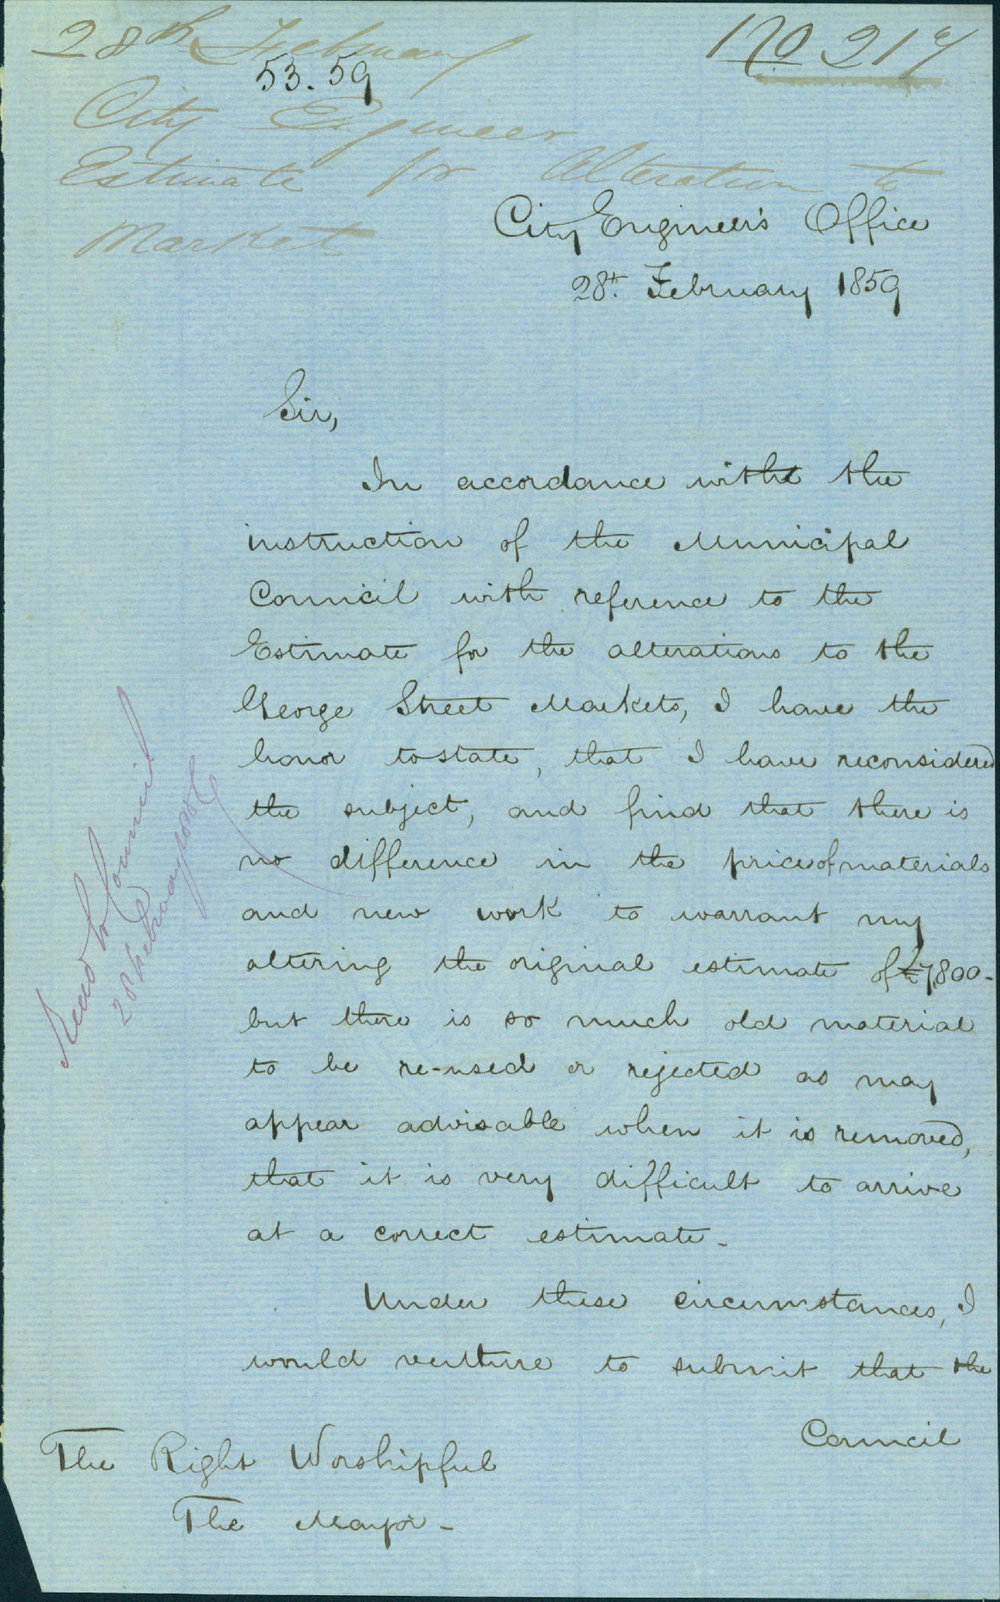 28th February
No 217
53.59
City Engineer
Estimate for Alteration to
Markets
City Engineer's Office
28th. February 1859
Sir,
In accordance with the
instruction of the Municipal
Council with reference to the
Estimate for the alterations to the
George Street Markets, I have the
honor to state, that I have reconsidered
the subject, and find that there is
no difference in the price of materials
and new work to warrant my
altering the original estimate of £7,800-
but there is so much old material
to be re-used or rejected as may
appear advisable when it is removed,
that it is very difficult to arrive
at a correct estimate-
Under these circumstances, I
would venture to submit that the
Council
The Right Worshipful
The Mayor-
Read in Council
28th February